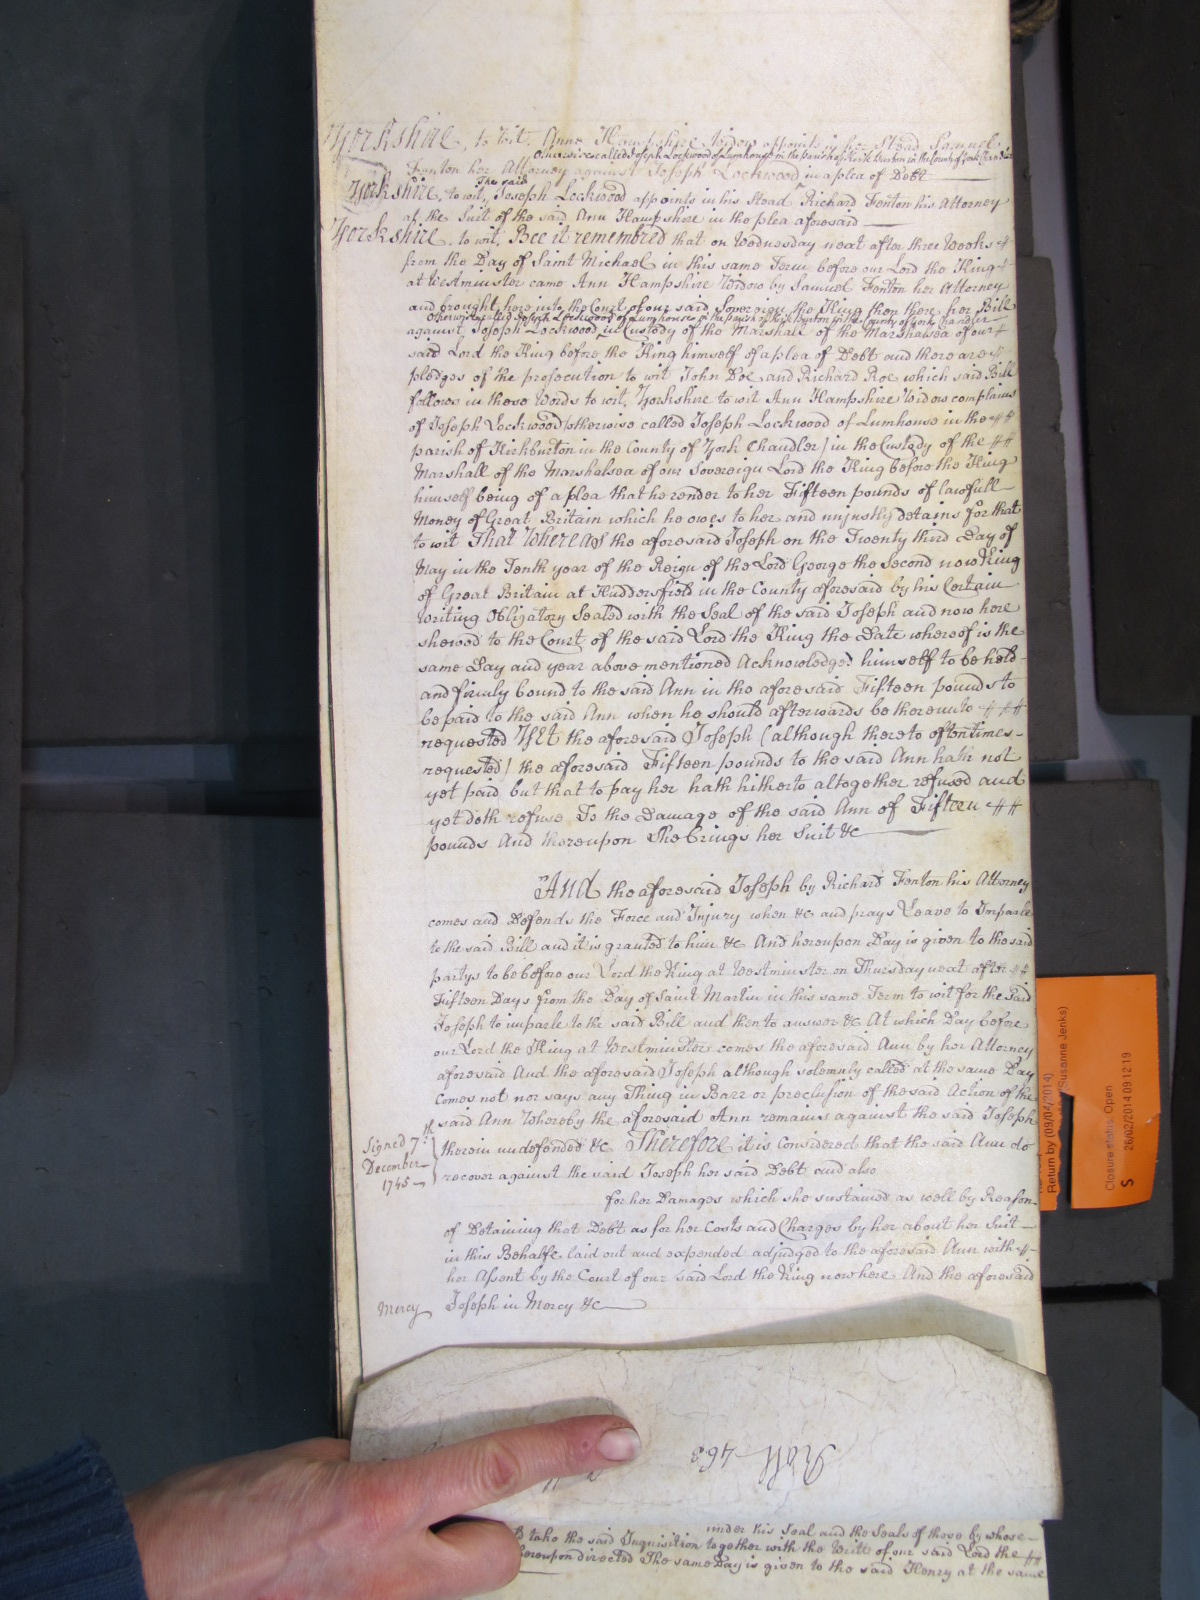 Yorkshire, to wit, Anne Hampshire Widow appoints in her Stead Samuel
otherwise called Joseph Lockwood of Lumhouse in the parish of Kirk Burton in the County of York Chandler
Fenton her Attorney against Joseph Lockwood in a plea of Debt
Yorkshire, to wit, The said Joseph Lockwood appoints in his Stead Richard Fenton his Attorney
at the Suit of the said Ann Hampshire in the plea aforesaid
Yorkshire, to wit, Bee it remembred that on Wednesday next after three Weeks
from the Day of Saint Michael in this same Term before our Lord the King
at Westminster came Ann Hampshire Widow by Samuel Fenton her Attorney
and brought here into the Court of our said Sovereign the King then there her Bill
otherwise called Joseph Lockwood of Lumhouse in the parish of Kirk Burton in the County of York Chandler
against Joseph Lockwood in Custody of the Marshall of the Marshalsea of our
said Lord the King before the King himself of a plea of Debt and there are
pledges of the prosecution to wit John Doe and Richard Roe which said Bill
follows in these Words to wit, Yorkshire to wit Ann Hampshire Widow complains
of Joseph Lockwood (otherwise called Joseph Lockwood of Lumhouse in the
parish of Kirkburton in the County of York Chandler) in the Custody of the
Marshall of the Marshalsea of our Sovereign Lord the King before the King
himself being of a plea that he render to her Fifteen pounds of lawfull
Money of Great Britain which he owes to her and unjustly detains for that
to wit That Whereas the aforesaid Joseph on the Twenty third Day of
May in the Tenth year of the Reign of the Lord George the Second now King
of Great Britain at Huddersfield in the County aforesaid by his Certain
Writing Obligatory Sealed with the Seal of the said Joseph and now here
shewed to the Court of the said Lord the King the Date whereof is the
same Day and year above mentioned Acknowledged himself to be held
and firmly bound to the said Ann in the aforesaid Fifteen pounds to
be paid to the said Ann when he should afterwards be thereunto
requested Yet the aforesaid Joseph (although thereto oftentimes
requested) the aforesaid Fifteen pounds to the said Ann hath not
yet paid but that to pay her hath hitherto altogether refused and
yet doth refuse To the Damage of the said Ann of Fifteen
pounds And thereupon She brings her Suit &c
And the aforesaid Joseph by Richard Fenton his Attorney
comes and Defends the Force and Injury when &c and prays Leave to Imparle
to the said Bill and it is granted to him &c And hereupon Day is given to the said
partys to be before our Lord the King at Westminster on Thursday next after
Fifteen Days from the Day of Saint Martin in this same Term to wit for the said
Joseph to imparle to the said Bill and then to answer &c At which Day before
our Lord the King at Westminster comes the aforesaid Ann by her Attorney
aforesaid And the aforesaid Joseph although solemnly called at the same Day
Comes not nor says any Thing in Barr or preclusion of the said Action of the
said Ann Whereby the aforesaid Ann remains against the said Joseph
Signed 7th
December
1745
therein undefended &c Therefore it is Considered that the said Ann do
recover against the said Joseph her said Debt and also
for her Damages which she sustained as well by Reason
of Detaining that Debt as for her Costs and Charges by her about her Suit
in this Behalfe laid out and expended adjudged to the aforesaid Ann with
her Assent by the Court of our said Lord the King now here And the aforesaid
Mercy
Joseph in Mercy &c
Roll 463
under his Seal and the Seals of those by whose
take the said Inquisition together with the Writt of our said Lord the
thereupon directed The same Day is given to the said Henry at the same
Return by (09/04/2014)
(Susanne Jenks)
Closure status: Open
S 26/02/2014 09:12:19